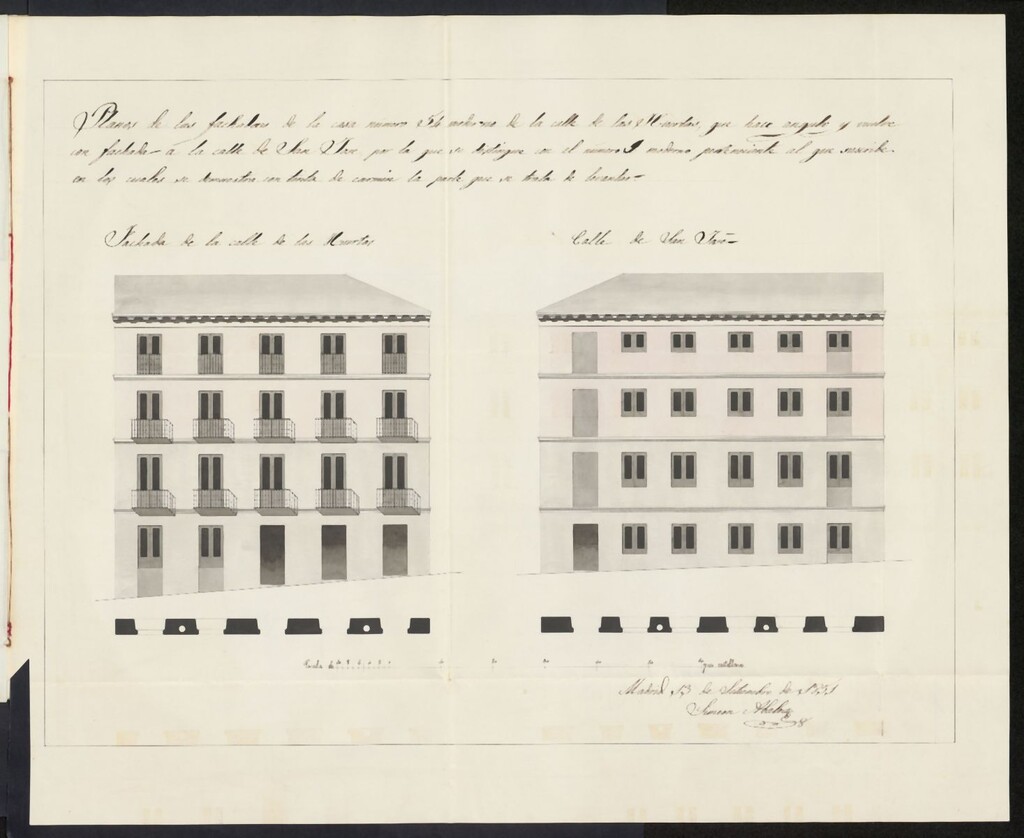 Planos de las fachadas de la casa numero 54 moderno de la calle de las Huertas, que hace angulo y vuelve
con fachada á la calle de San José por la que se distingue con el numero 9 moderno perteneciente al que suscribe
en los cuales se demuestra con tinta de carmin la parte que se trata de levantar
Fachada de la calle de las Huertas
Calle de San José
Escala de
pies castellanos
Madrid 13 de Setiembre de
Simeon